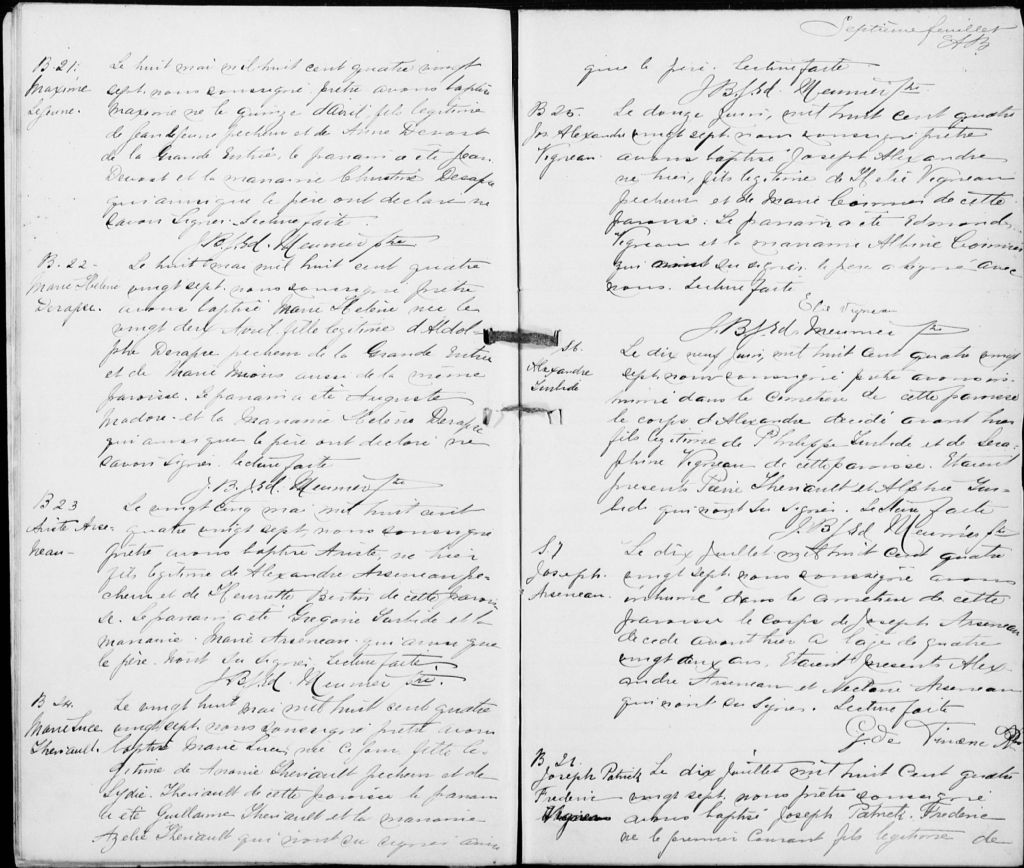 B. 21.
Maxime
Lejeune.
Le huit mai mil huit cent quatre vingt
sept nous soussigné prêtre avons baptisé
Maxime né le quinze d'avril fils légitime
de Jean Lejeune pecheur et de Anne Devost
de la Grande Entrée, le parrain a été Jean
Devost et la marraine Christine Derapse
qui ainsi que le père ont déclaré ne
savoir signer. Lecture faite
J. B. J. Ed. Meunier Ptre
B. 22 -
Marie Helene
Derapse.
Le huit mai mil huit cent quatre
vingt sept, nous soussigné prêtre
avons baptisé Marie Hélène née le
vingt deux Avril fille legitime d'Adol-
phe Derapse pecheur de la Grande Entrée
et de Marie aussi de la même
paroisse. Le parrain a été Auguste
Nadore et la marraine Hélène Derapse
qui ainsi que le père ont declaré ne
savoir signer. Lecture faite
J. B. J. Ed. Meunier Ptre
B 23
Ariste Arse-
neau-
Le vingt cinq mai mil huit cent
quatre vingt sept, nous soussigné
prêtre avons baptisé Ariste, né hier
fils légitime de Alexandre Arseneau pe-
cheur et de Henriette de cette parois
se. Le parrain a été Gregoire Turbide et la
marraine Marie Arseneau qui ainsi que
le père n'ont su signer. Lecture faite
J. B. J. Ed. Meunier Ptre.
B 24.
Marie Luce
Theriault.
Le vingt huit mai mil huit cent quatre
vingt sept nous soussigné prêtre avons
baptisé Marie Luce, née ce jour fille lé-
gitime de Ananie Theriault pecheur et de
Lydie Theriault de cette paroisse le parrain
a été Guillaume Theriault et la marraine
Azelie Theriault qui n'ont su signer ainsi
Septième feuillet
que le père. Lecture faite
J. B. J. Ed. Meunier Ptre
B 25.
Jos Alexandre
Vigneau
Le douze Juin, mil huit cent quatre
vingt sept, nous soussigné prêtre
avons baptisé Joseph Alexandre
né hier, fils legitime de Helie Vigneau
pecheur et de Marie Cormier de cette
paroisse. Le parrain a été Edmond
Vigneau et la marraine Albine Cormier
qui su signer. le père a signé avec
nous. Lecture faite
Elie Vigneau
J. B. J. Ed. Meunier Ptre
S 6.
Alexandre
Turbide
Le dix neuf Juin, mil huit cent quatre vingt
sept nous soussigné prêtre avons in-
humé dans le cimetière de cette paroisse
le corps d'Alexandre décédé avant hier
fils legitime de Philippe Turbide et de Sera-
phine Vigneau de cette paroisse. Etaient
presents Pierre Theriault et Alphé Tur-
bide qui n'ont su signer. Lecture faite
J. B. J. Ed Meunier Ptre
S. 7
Joseph
Arseneau.
Le dix Juillet mil huit cent quatre
vingt sept nous soussigné avons
inhumé dans le cimetière de cette
paroisse le corps de Joseph Arseneau
décédé avant hier à l'age de quatre
vingt deux ans. Etaient presents Alex-
andre Arseneau et Nectaire Arseneau
qui n'ont su signer. Lecture faite
Joseph Patrick
Frederic
Vigneau
Le dix juillet mil huit cent quatre
vingt sept, nous prêtre soussigné
avons baptisé Joseph Patrick Frederic
né le premier courant fils legitime de